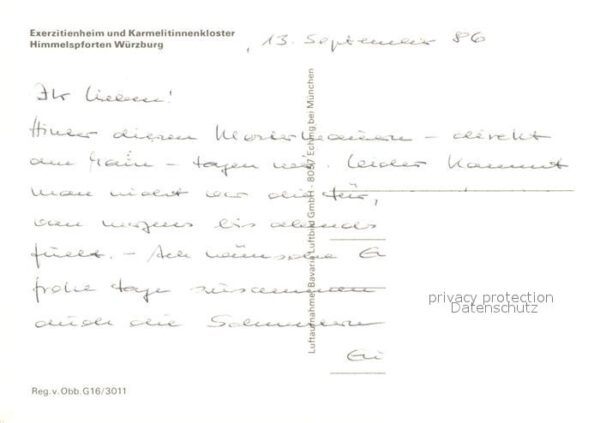 Exerzitienheim und Karmelitinnenkloster
Himmelspforten Würzburg
, 13. September 86
Ihr Lieben!
Hinter diesen Klostermauern – direkt
am Main – tagen wir. Leider kommt
man nicht vor die Tür,
von morgens bis abends
. – Ich wünsche
frohe Tage zusammen
auch die
Luftaufnahme: Bavaria Luftbild GmbH - 8057 Eching bei München
privacy protection
Datenschutz
Reg.v.Obb.G16/3011